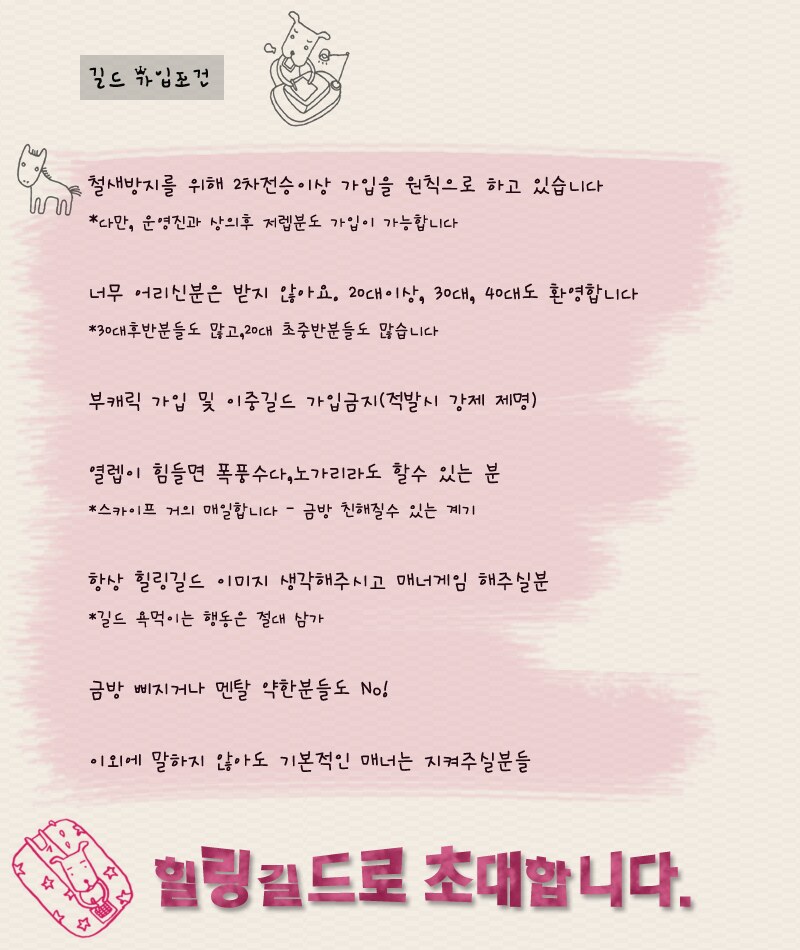 길드 가입조건
철새방지를 위해 2차전승이상 가입을 원칙으로 하고 있습니다
*다만, 운영진과 상의후 저렙분도 가입이 가능합니다
너무 어리신분은 받지 않아요. 20대이상, 30대, 40대도 환영합니다
*30대후반분들도 많고,20대 초중반분들도 많습니다
부캐릭 가입 및 이중길드 가입금지(적발시 강제 제명)
열렙이 힘들면 폭풍수다,노가리라도 할수 있는 분
*스카이프 거의 매일합니다 - 금방 친해질수 있는 계기
항상 힐링길드 이미지 생각해주시고 매너게임 해주실분
*길드 욕먹이는 행동은 절대 삼가
금방 삐지거나 멘탈 약한분들도 No!
이외에 말하지 않아도 기본적인 매너는 지켜주실분들
힐링길드로 초대합니다.